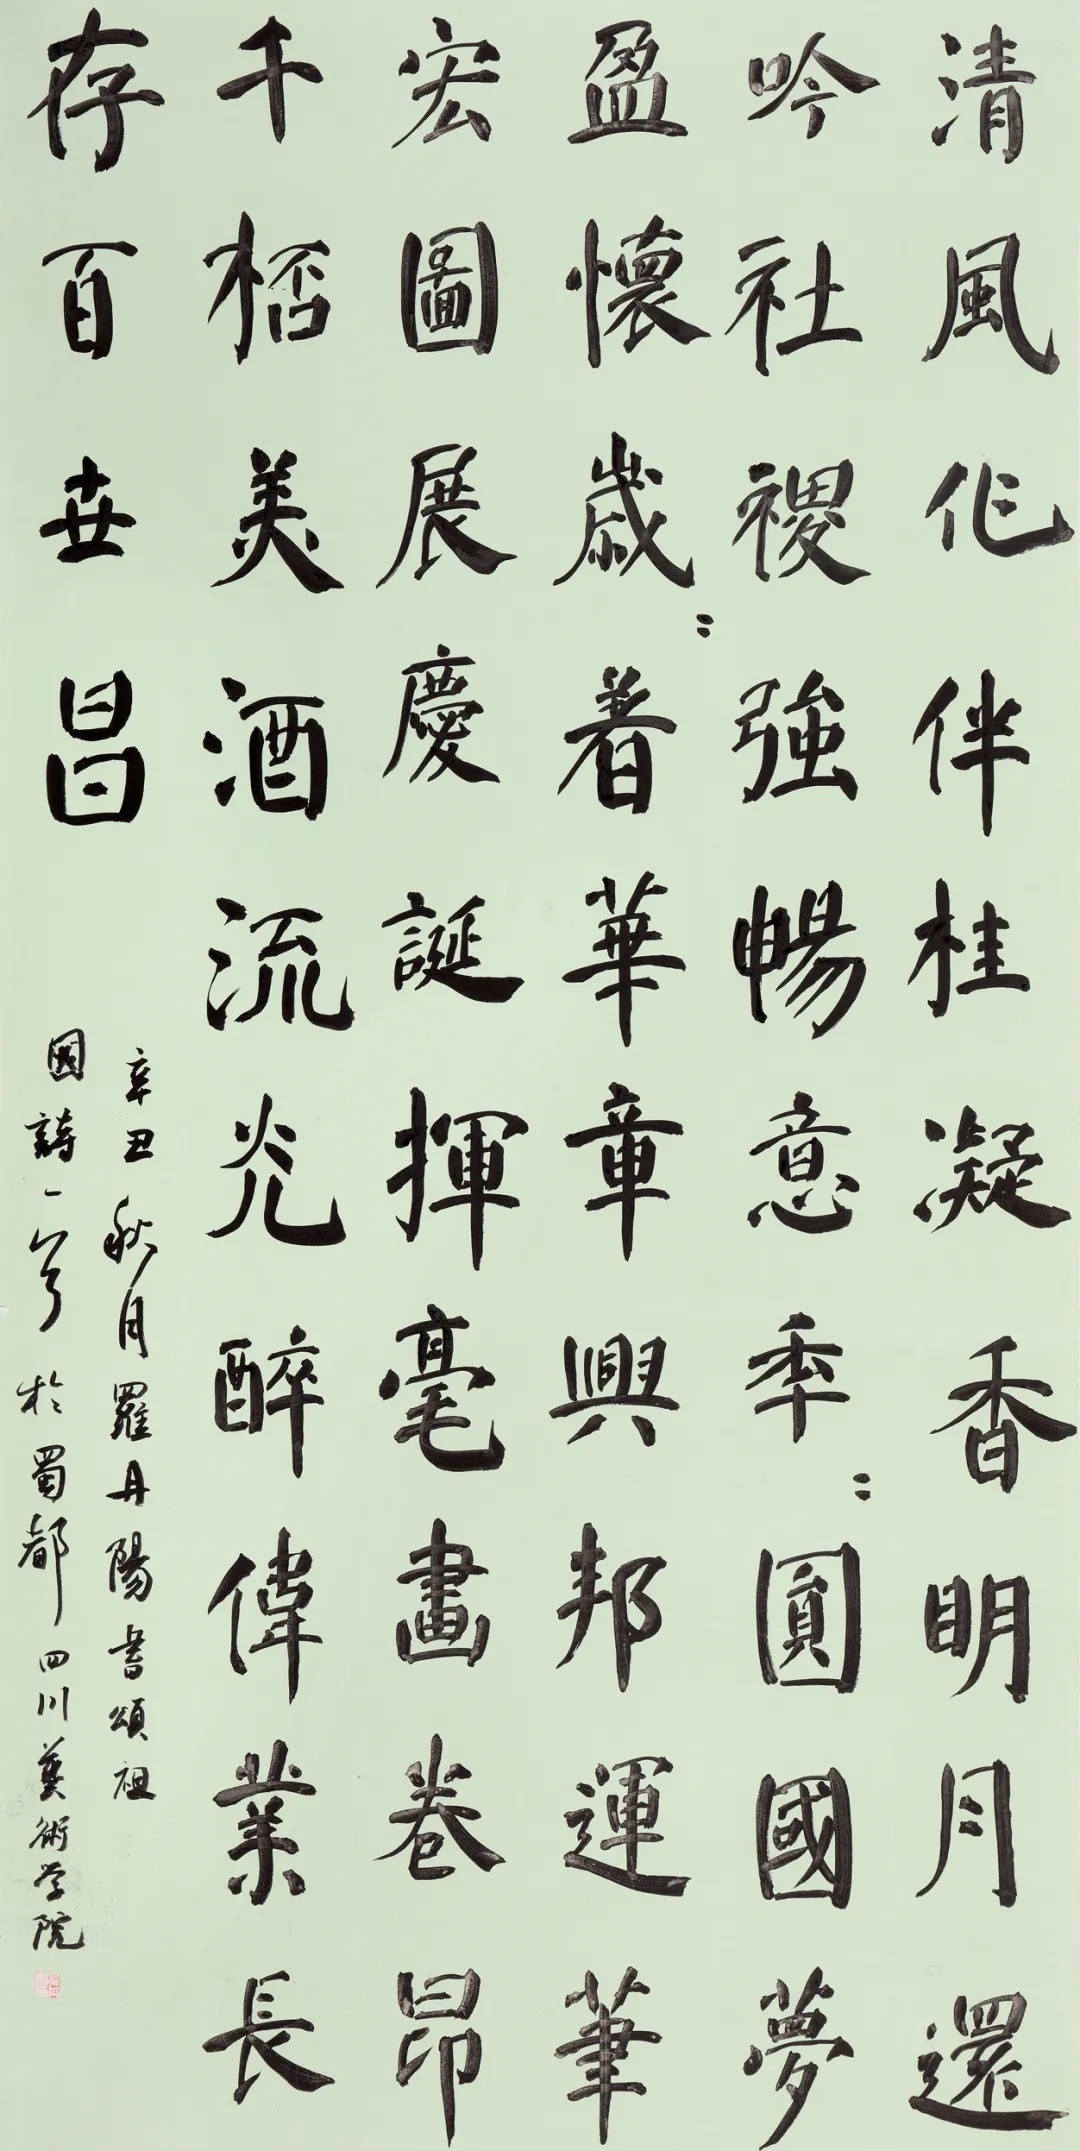 清風化伴桂凝香明月還
吟社稷強暢意季〻圓國夢
盈懷歲〻着華章興邦運筆
宏圖展慶誕揮毫畫卷昂
千桮美酒流光醉偉業長
存百世昌
辛丑秋月羅丹陽書頌祖
國詩一首於蜀都四川藝術学院